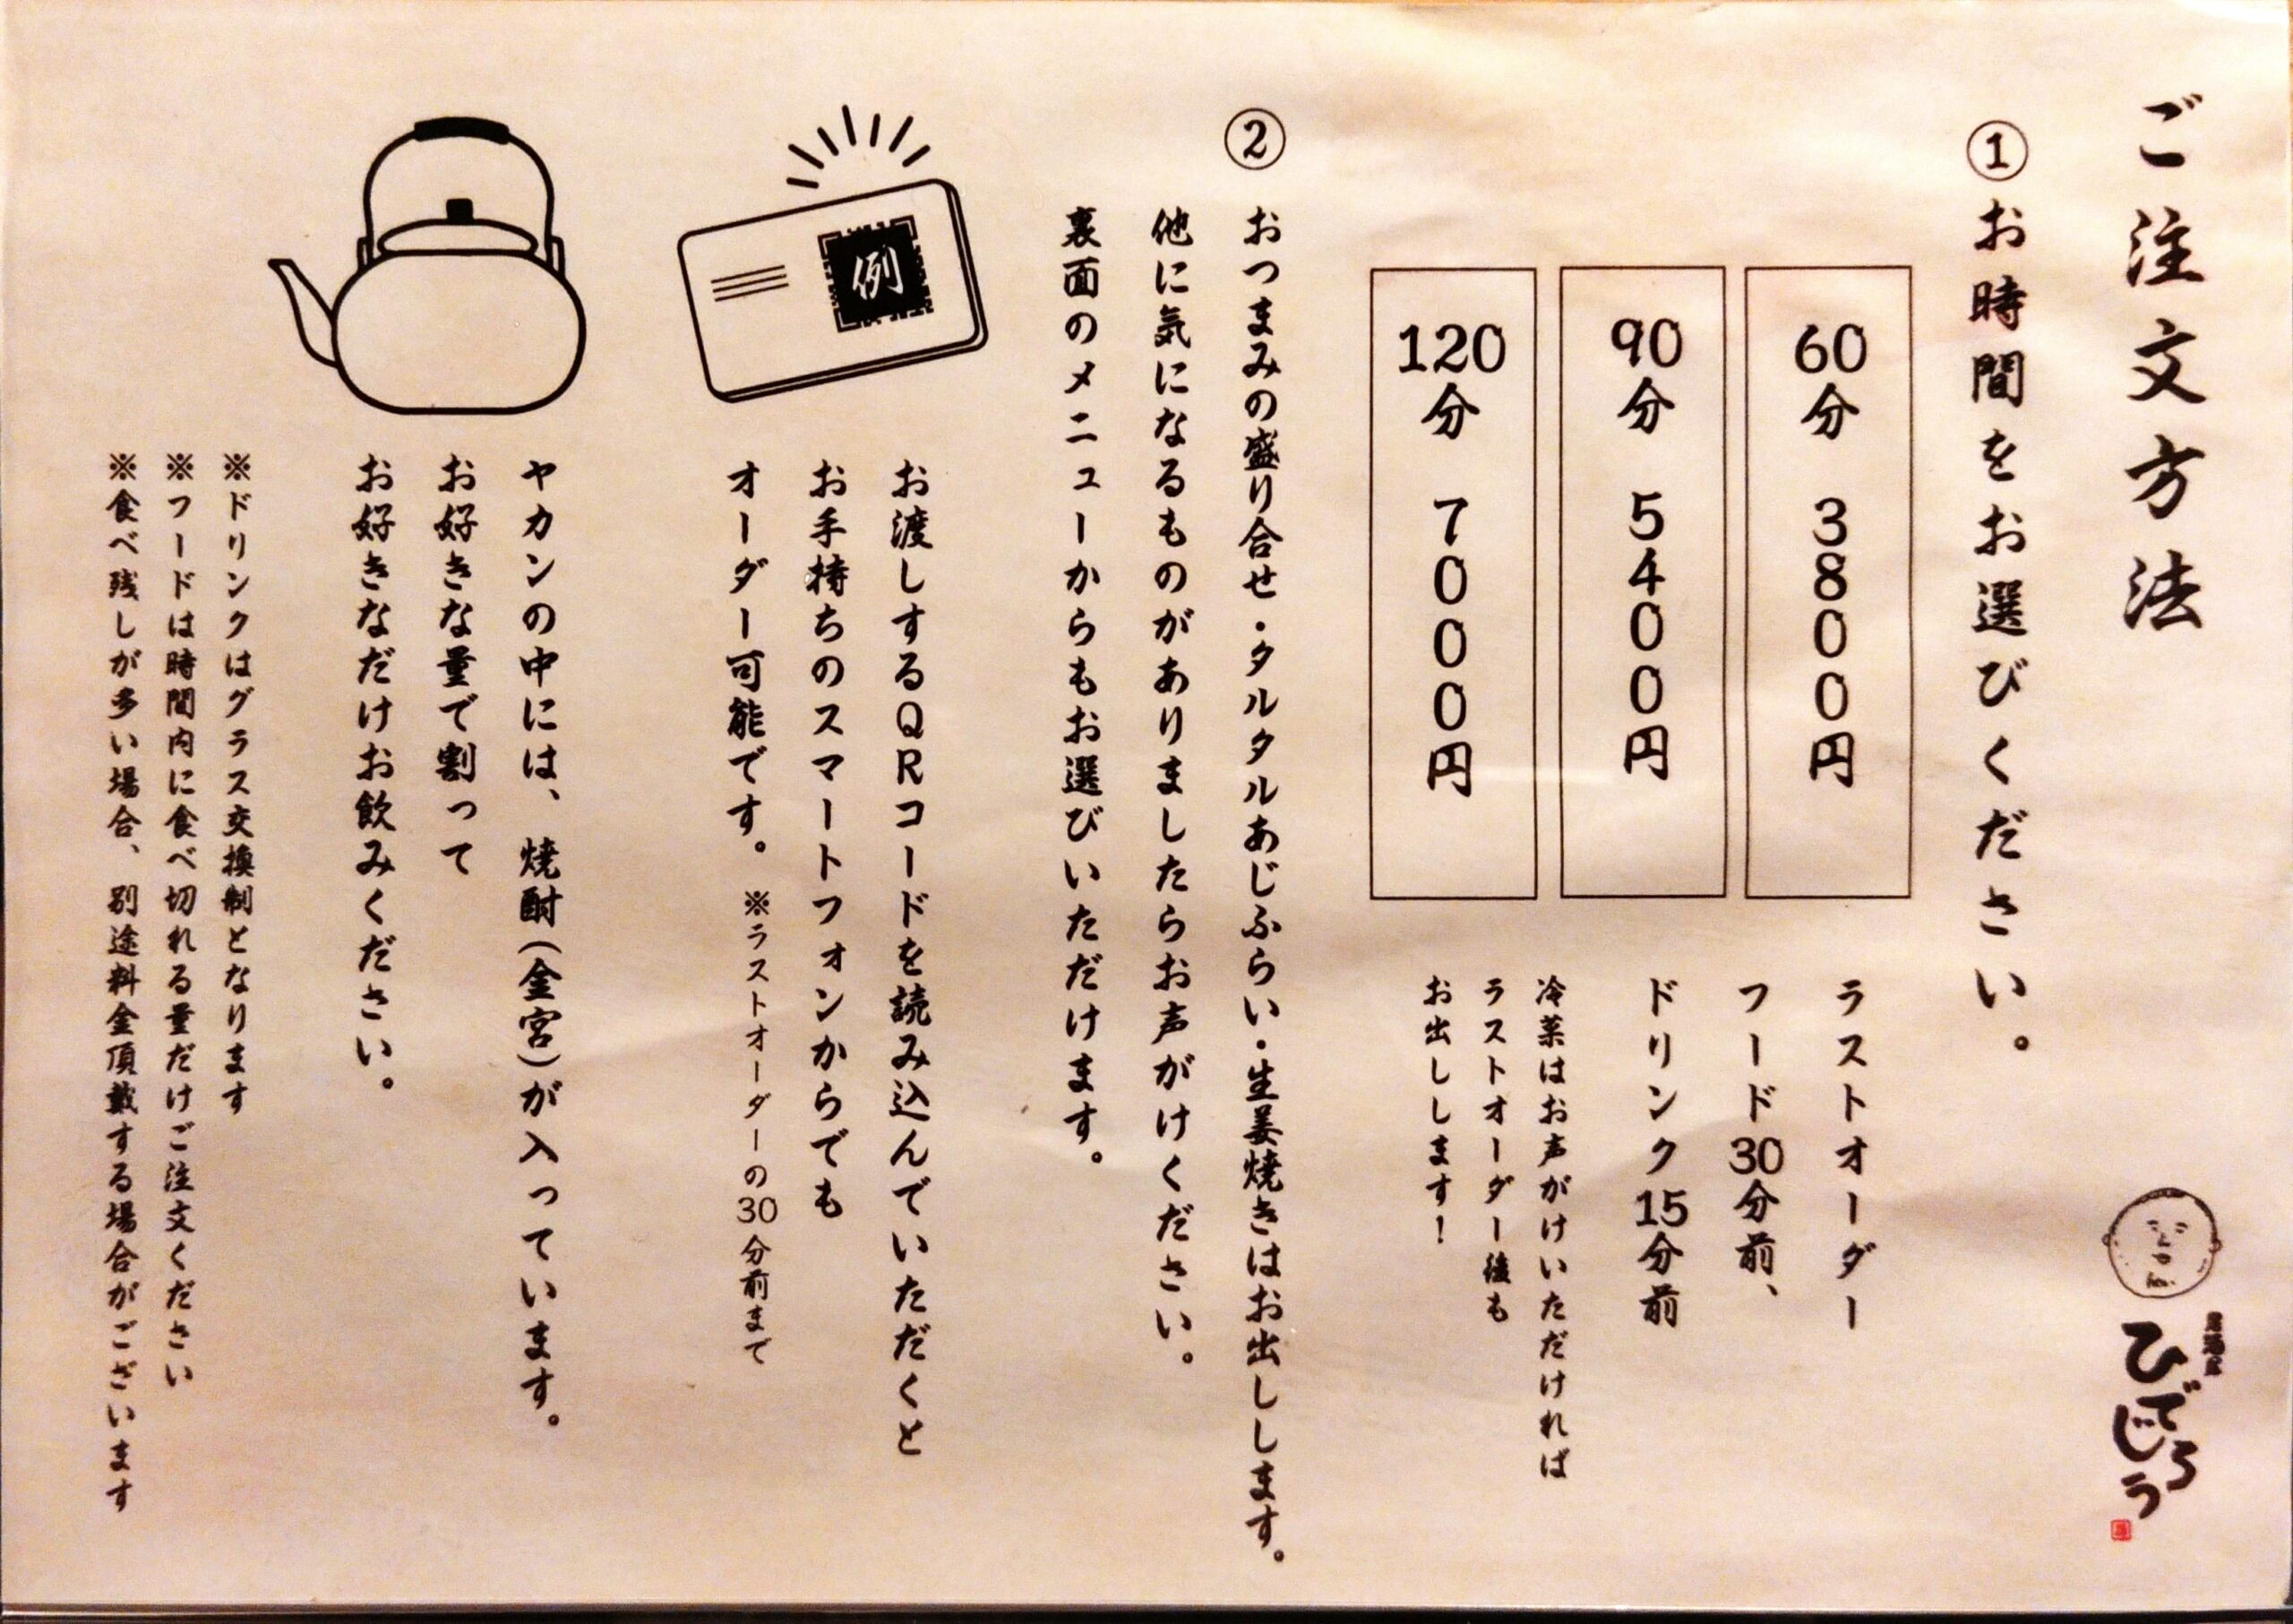 ご注文方法
①お時間をお選びください。
60分 3800円
90分 5400円
120分 7000円
ラストオーダー
フード30分前、
ドリンク15分前
冷菜はお声がけいただければ
ラストオーダー後も
お出しします！
②おつまみの盛り合せ・タルタルあじふらい・生姜焼きはお出しします。
他に気になるものがありましたらお声がけください。
裏面のメニューからもお選びいただけます。
例
お渡しするQRコードを読み込んでいただくと
お手持ちのスマートフォンからでも
オーダー可能です。※ラストオーダーの30分前まで
ヤカンの中には、焼酎(金宮)が入っています。
お好きな量で割って
お好きなだけお飲みください。
※ドリンクはグラス交換制となります
※フードは時間内に食べ切れる量だけご注文ください
※食べ残しが多い場合、別途料金頂戴する場合がございます
居酒屋
ひでじろう